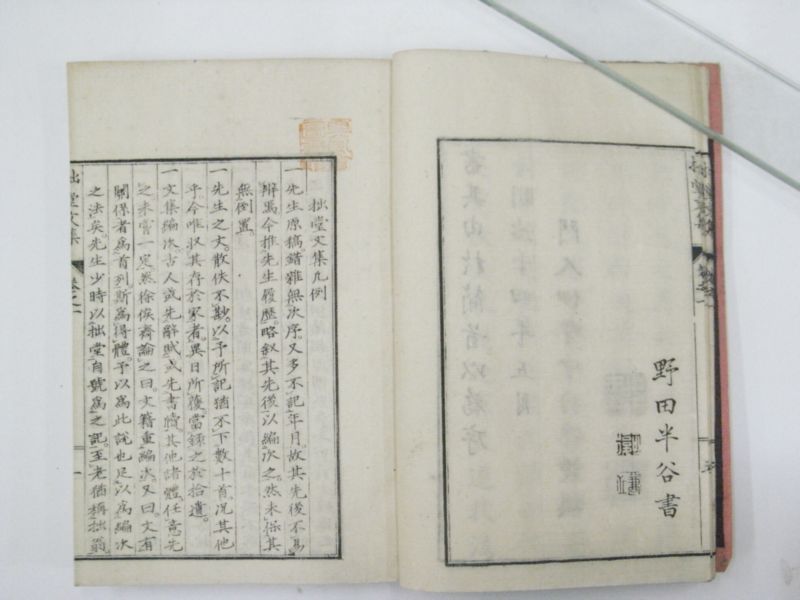 野田半谷書
拙堂文集凡例
一先生原稿。錯雜無次序。又多不記年月。故其先後不易
辨焉今推先生履歷。略敘其先後以編次之。然未保其
無倒置。
一先生之文。散佚不尠。以予所記猶不下數十首。況其他
乎今唯収其存於家者。異日所獲當錄之於拾遺。
一文集編次古人或先辭賦或先書牘其他諸體任意先
之未嘗一定然徐俟齋論之曰。文籍重編次。又曰。文有
關係者爲首列斯爲得體。予以爲此說也足以爲編次
之法矣先生少時以拙堂自號爲之記。至老猶稱拙翁
拙堂文集 卷之一 一